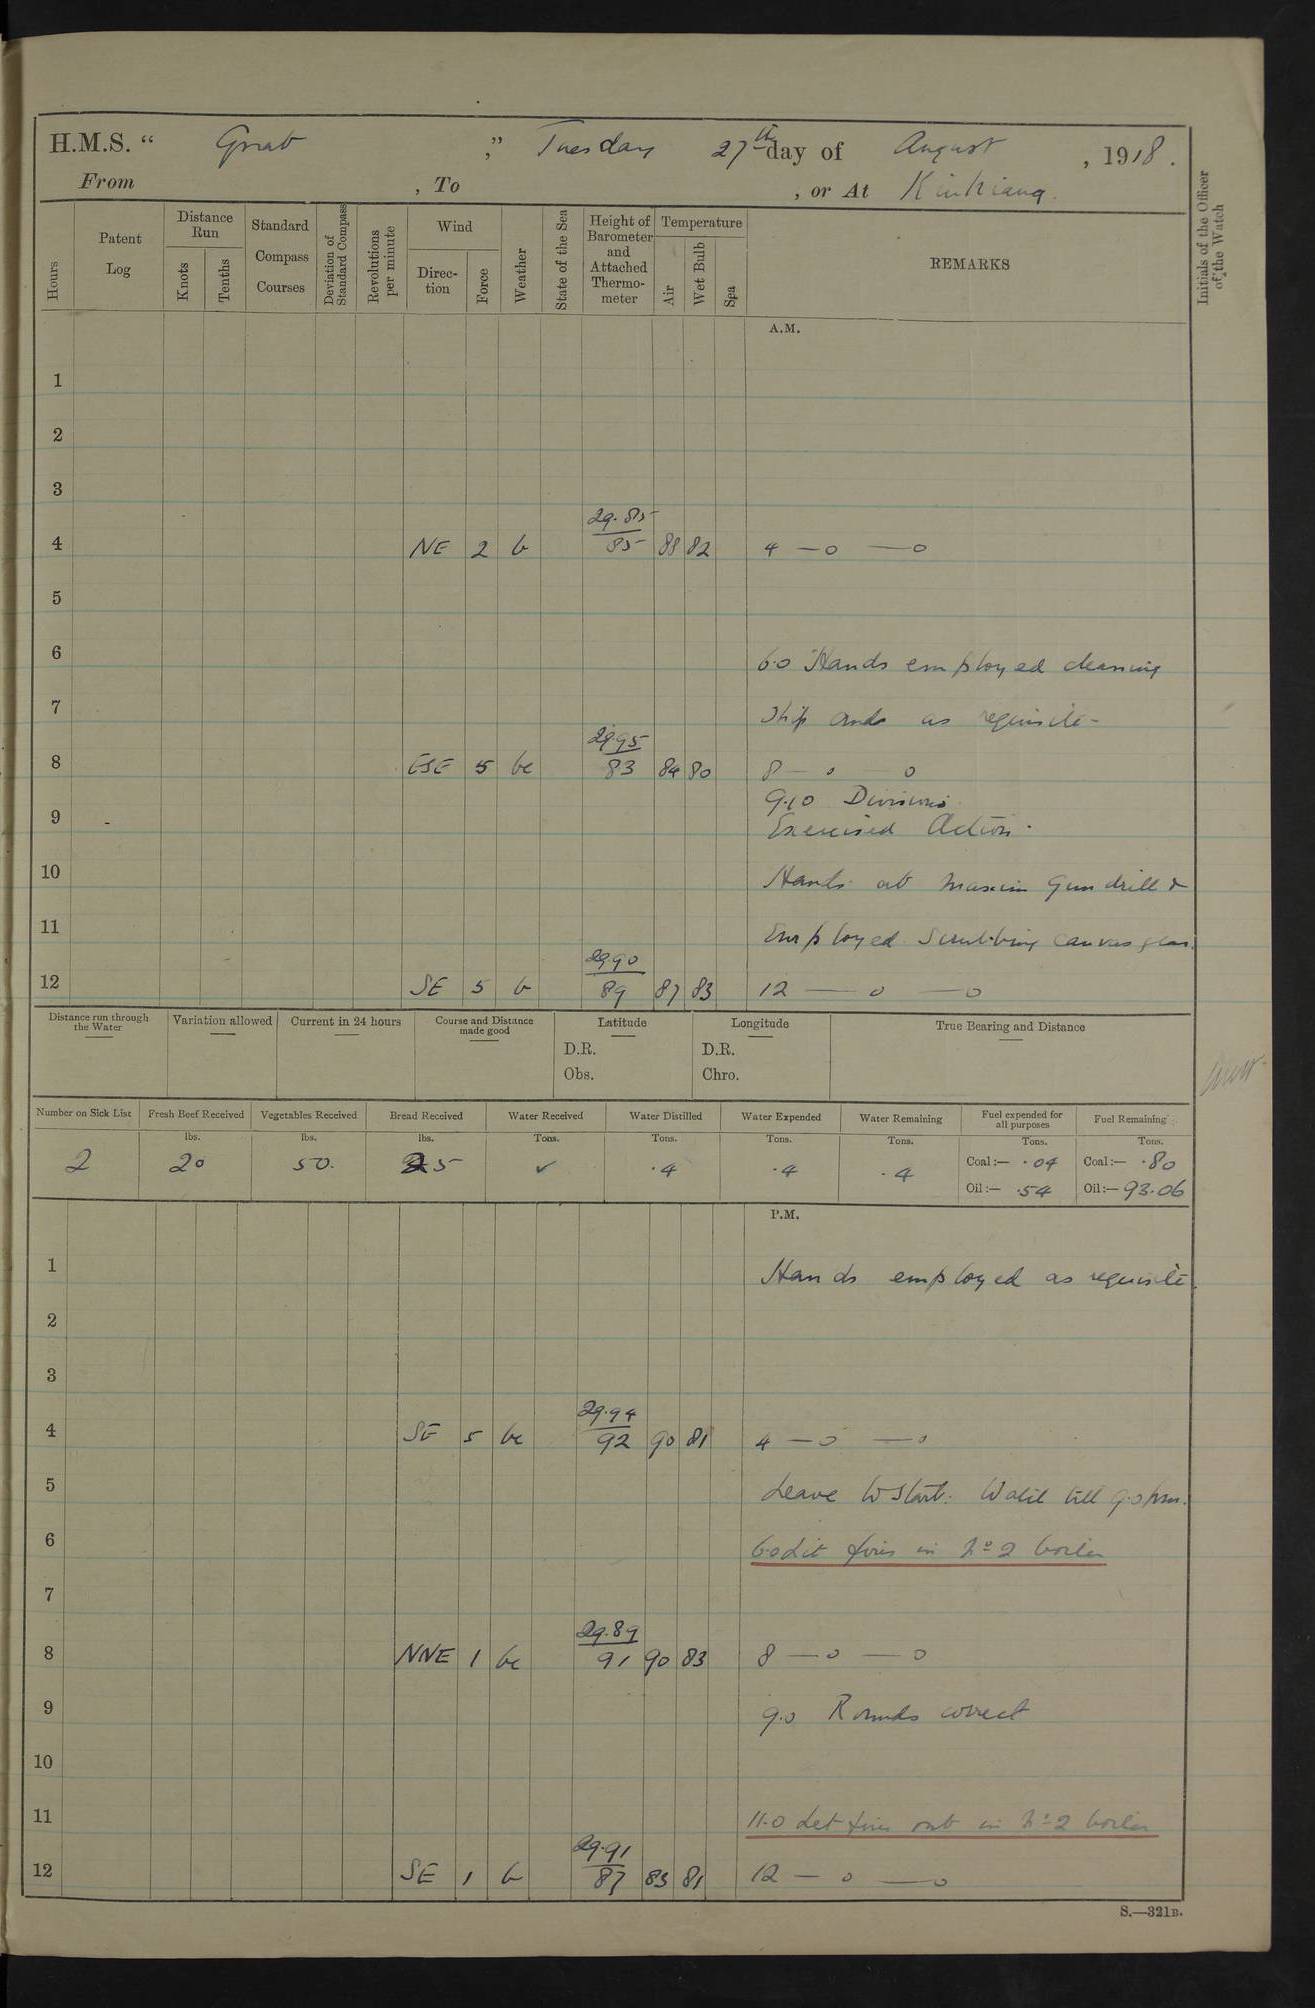 H.M.S. “ Gnat ,” Tuesday 27th day of August , 1918.
From , To , or At Kiukiang.
Hours Patent Log Distance Run Knots Tenths Standard Compass Courses Deviation of Standard Compass Revolutions per minute Wind Direc-tion Force Weather State of the Sea Height of Barometer and Attached Thermo-meter Temperature Air Wet Bulb Spa REMARKS Initials of the Officer of the Watch
A.M.
1
2
3
29.85
4 NE 2 b 85 88 82 4 —o —o
5
6 6.0 Hands employed cleaning
7 ship and as requisite-
29.95
8 ESE 5 bc 83 84 80 8 — o o
9.10 Divisions
9 Exercised Action.
10 Hands at maxim gun drill &
11 Employed scrubbing canvas gear.
29.90
12 SE 5 b 89 87 83 12 — o —o
Distance run through the Water Variation allowed Current in 24 hours Course and Distance made good Latitude Longitude True Bearing and Distance
D.R. D.R.
Obs. Chro.
Number on Sick List Fresh Beef Received Vegetables Received Bread Received Water Received Water Distilled Water Expended Water Remaining Fuel expended for all purposes Fuel Remaining
lbs. lbs. lbs. Tons. Tons. Tons. Tons. Tons. Tons.
2 20 50. 25 ✓ .4 .4 .4 Coal:— .04 Coal:— .80
Oil:— .54 Oil:— 93.06
P.M.
1 Hands employed as requisite.
2
3
29.94
4 SE 5 bc 92 90 81 4 —o —o
5 Leave to Starb: Watch till 9.0 pm.
6 6.0 Lit fires in No 2 boiler
7
29.89
8 NNE 1 bc 91 90 83 8 —o —o
9 9.0 Rounds correct
10
11 11.0 Let fires out in No 2 boiler
29.91
12 SE 1 b 87 83 81 12 — o —o
S.—321B.